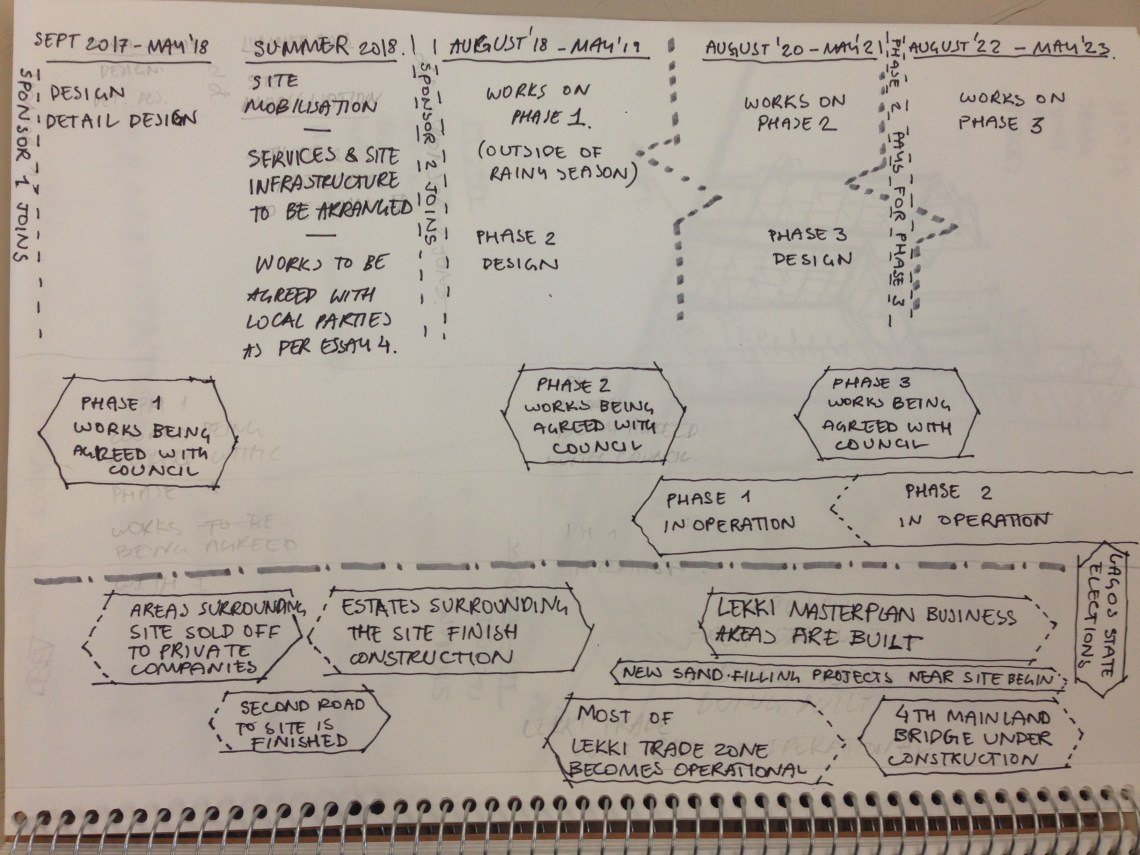 SEPT 2017 - MAY '18
SUMMER 2018.
AUGUST '18 - MAY '19
AUGUST '20 - MAY '21
AUGUST '22 - MAY '23.
SPONSOR 1 JOINS
DESIGN
DETAIL DESIGN
SITE
MOBILISATION
—
SERVICES & SITE
INFRASTRUCTURE
TO BE ARRANGED
—
WORKS TO BE
AGREED WITH
LOCAL PARTIES
AS PER ESSAY 4.
SPONSOR 2 JOINS
WORKS ON
PHASE 1.
(OUTSIDE OF
RAINY SEASON)
PHASE 2
DESIGN
WORKS ON
PHASE 2
PHASE 3
DESIGN
PHASE 2 PAYS FOR PHASE 3
WORKS ON
PHASE 3
PHASE 1
WORKS BEING
AGREED WITH
COUNCIL
PHASE 2
WORKS BEING
AGREED WITH
COUNCIL
PHASE 3
WORKS BEING
AGREED WITH
COUNCIL
PHASE 1
IN OPERATION
PHASE 2
IN OPERATION
LAGOS STATE
ELECTIONS
AREAS SURROUNDING
SITE SOLD OFF
TO PRIVATE
COMPANIES
ESTATES SURROUNDING
THE SITE FINISH
CONSTRUCTION
LEKKI MASTERPLAN BUSINESS
AREAS ARE BUILT
NEW SAND-FILLING PROJECTS NEAR SITE BEGIN
SECOND ROAD
TO SITE IS
FINISHED
MOST OF
LEKKI TRADE ZONE
BECOMES OPERATIONAL
4TH MAINLAND
BRIDGE UNDER
CONSTRUCTION